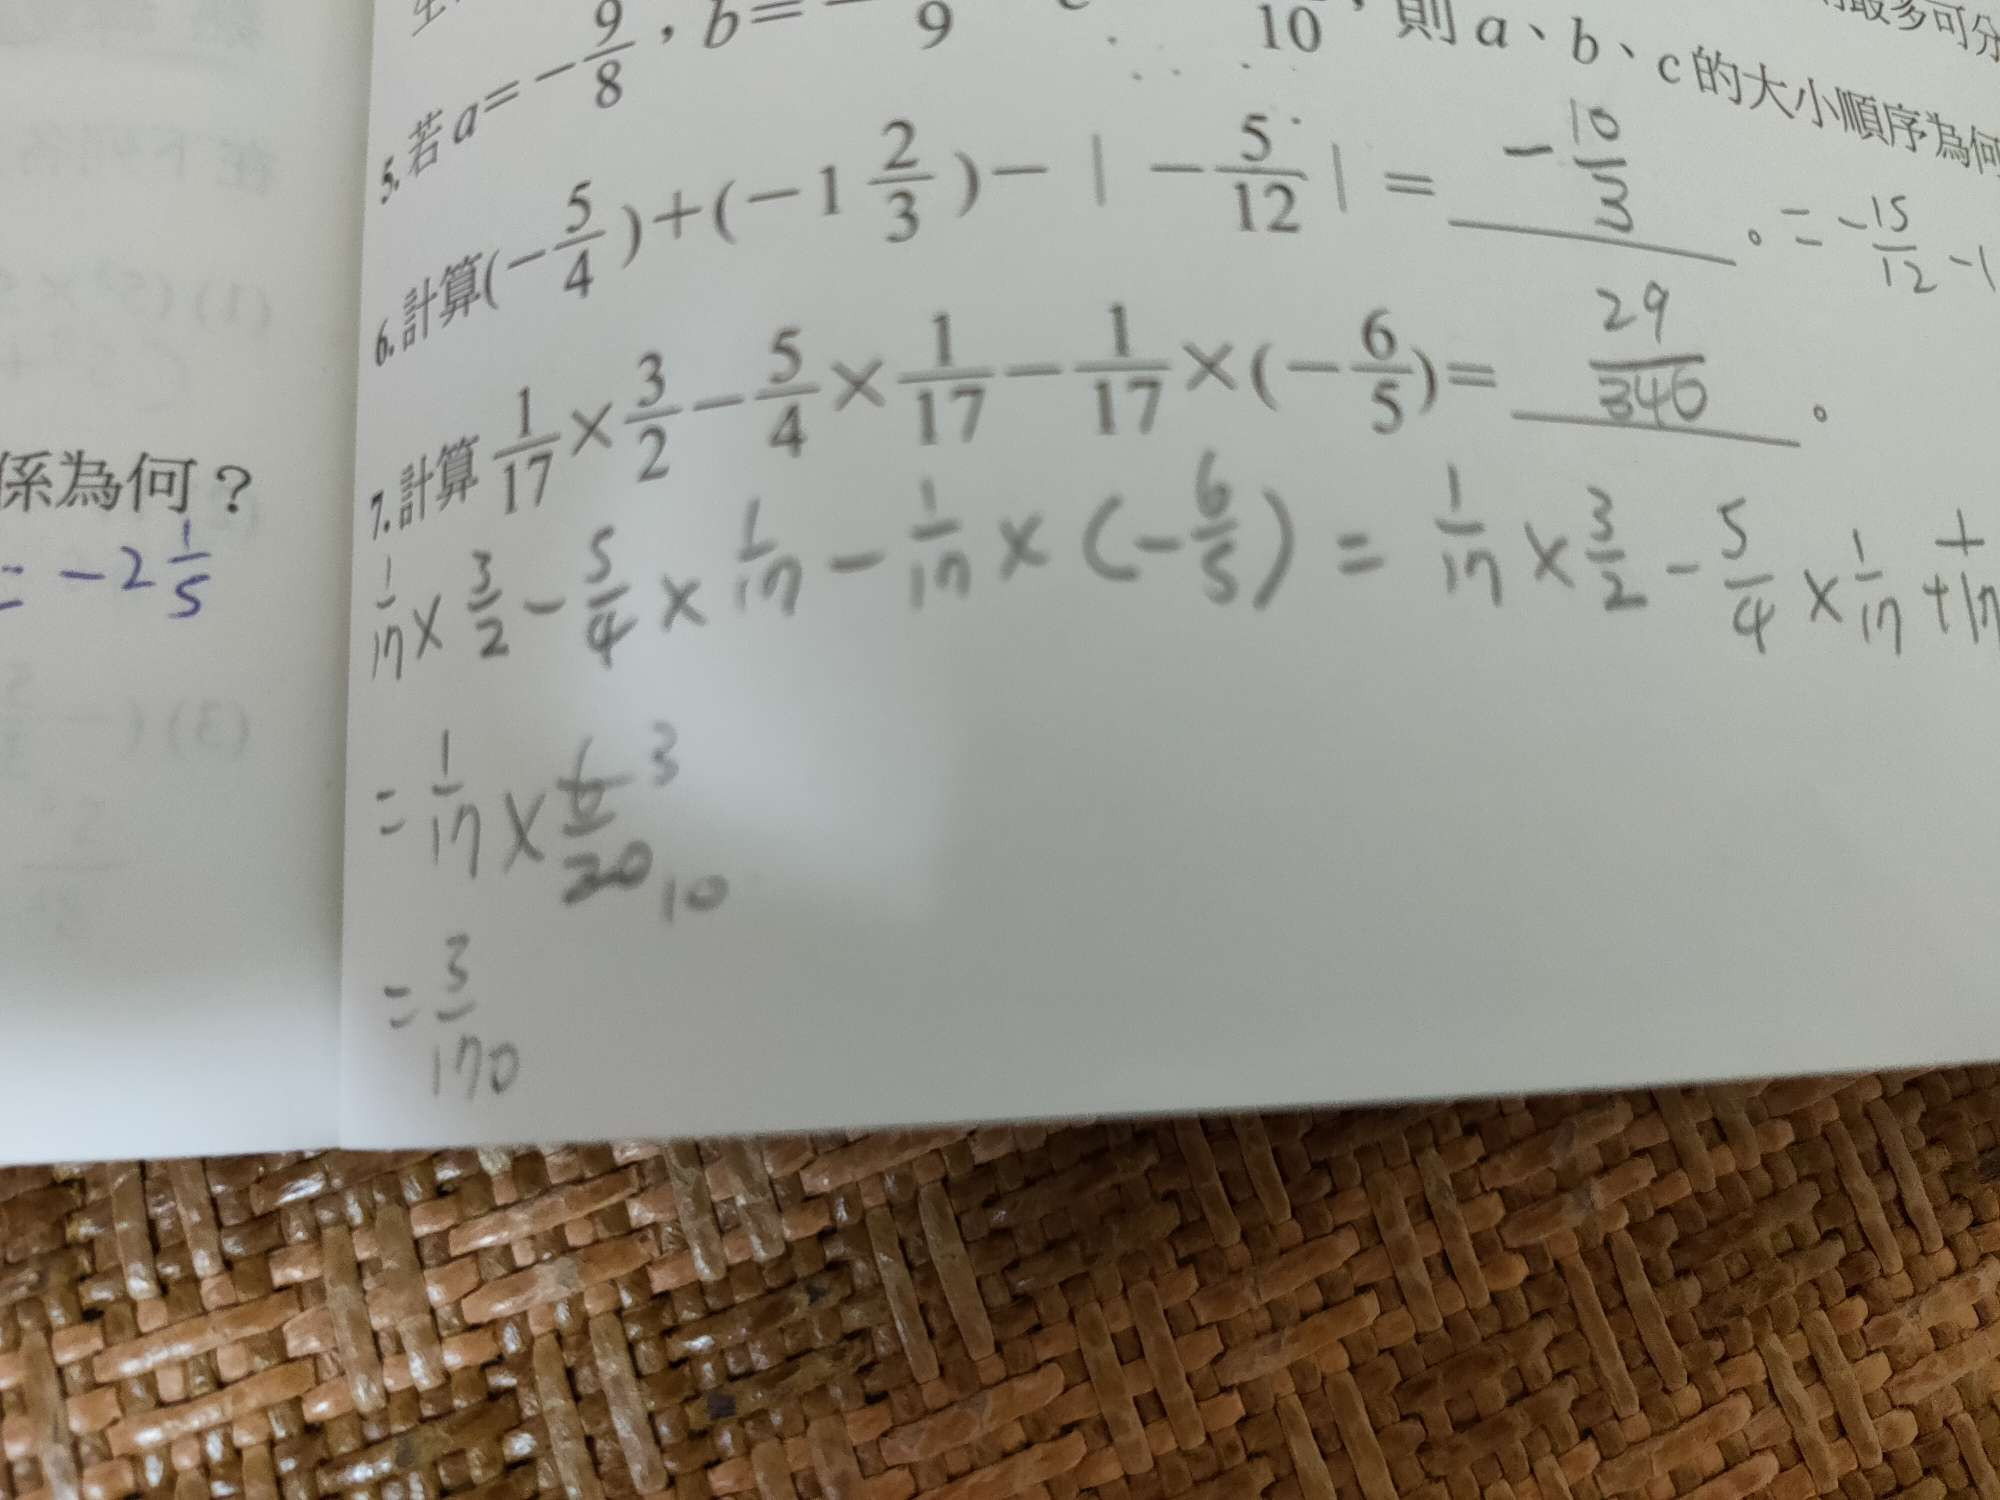 係為何？
= -2 1/5
5. 若 a = -9/8 , b = 9 10 , 則 a、b、c 的大小順序為何
6. 計算(-5/4)+(-1 2/3)-|-5/12|= -10/3 。 = -15/12 -1
7. 計算 1/17 × 3/2 - 5/4 × 1/17 - 1/17 × (-6/5)= 29/340 。
1/17 × 3/2 - 5/4 × 1/17 - 1/17 × (-6/5) = 1/17 × 3/2 - 5/4 × 1/17 + 1/17
= 1/17 × 6/20 3 10
= 3/170